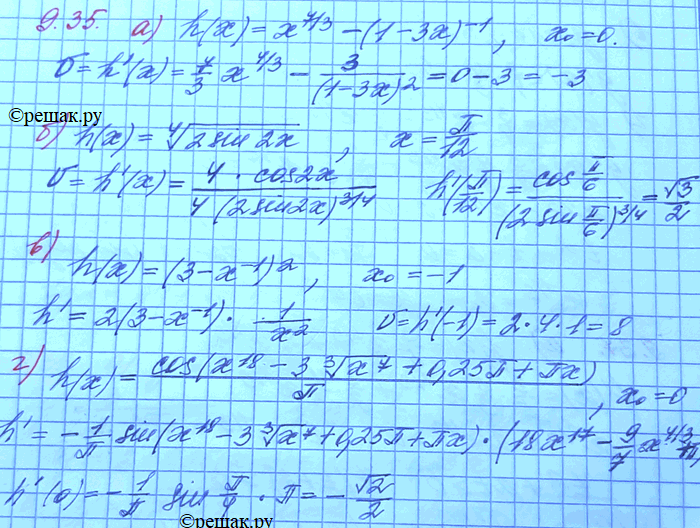 9.35. а) h(x) = x^{7/3} - (1-3x)^{-1}, x₀=0.
v = h'(x) = 7/3 x^{4/3} - 3/(1-3x)² = 0 - 3 = -3
©решак.ру
б) h(x) = ⁴√(2 sin 2x), x = π/12
v = h'(x) = 4 · cos2x / 4(2sin2x)^{3/4} h'(π/12) = cos π/6 / (2 sin π/6)^{3/4} = √3/2
в) h(x) = (3-x^{-1})², x₀ = -1
h' = 2(3-x^{-1}) · 1/x² v = h'(-1) = 2·4·1 = 8
г) h(x) = cos(x^{18} - 3 ∛x⁷ + 0,25π + πx) / π, x₀=0
h' = -1/π sin(x^{18} - 3∛x⁷ + 0,25π + πx) · (18x^{17} - 9/7 x^{4/3}
h'(0) = -1/π sin π/4 · π = -√2/2
©решак.ру